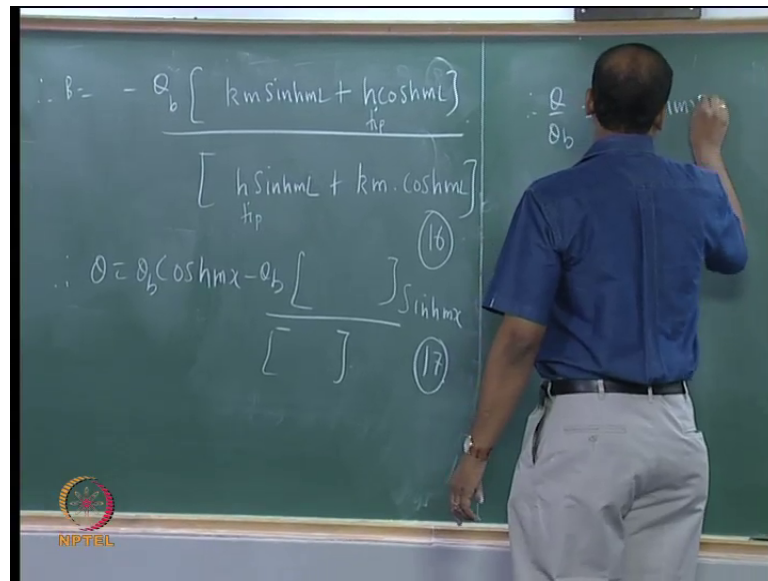 ∴ B = - θ_b [ km sinh mL + h_tip cosh mL ]
[ h_tip sinh mL + km . cosh mL ]
(16)
∴ θ = θ_b Cosh mx - θ_b [ ] Sinh mx
[ ]
(17)
∴ θ
θ_b
NPTEL